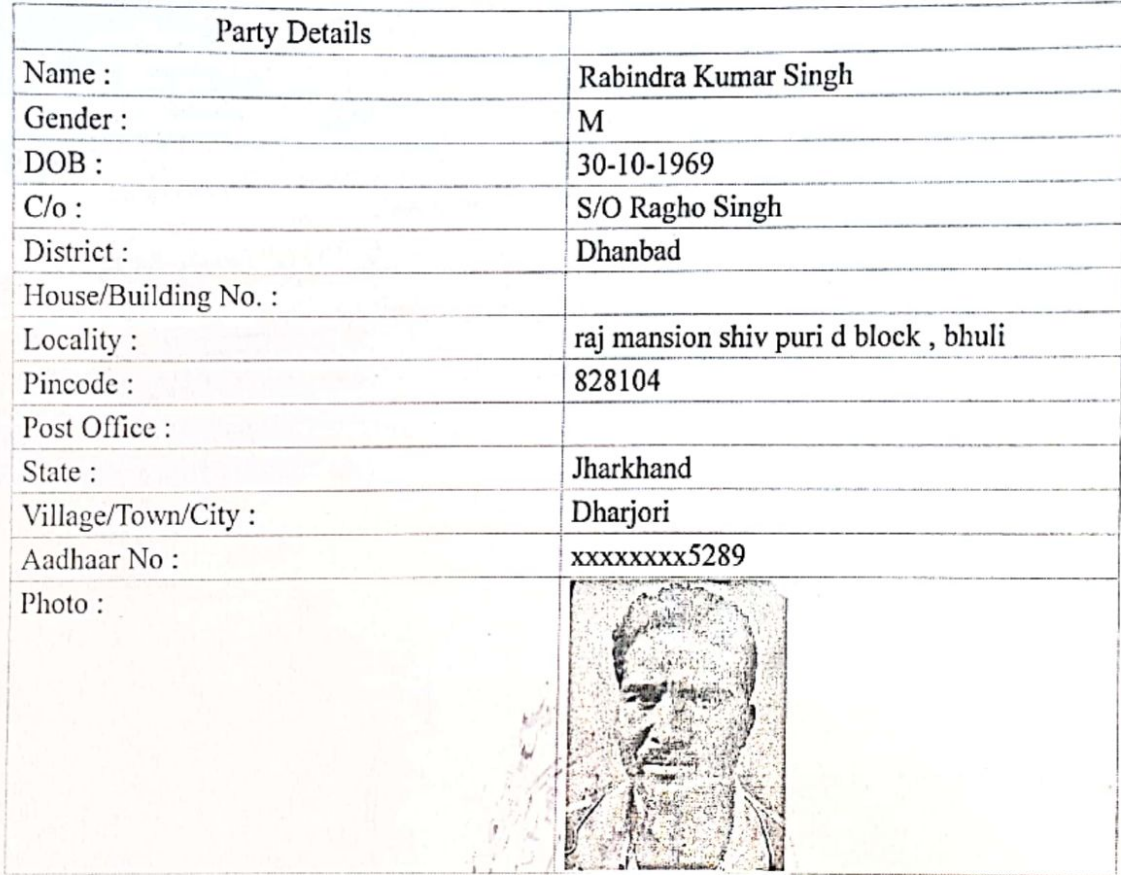 Party Details
Name : Rabindra Kumar Singh
Gender : M
DOB : 30-10-1969
C/o : S/O Ragho Singh
District : Dhanbad
House/Building No. :
Locality : raj mansion shiv puri d block , bhuli
Pincode : 828104
Post Office :
State : Jharkhand
Village/Town/City : Dharjori
Aadhaar No : xxxxxxxx5289
Photo :